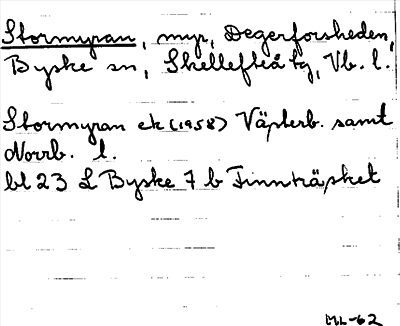 Stormyran, myr, Degerforsheden,
Byske sn, Skellefteå tg, Vb. l.
Stormyran ek (1958) Västerb. samt
Norrb. l.
bl 23 L Byske 7 b Finnträsket
ML-62